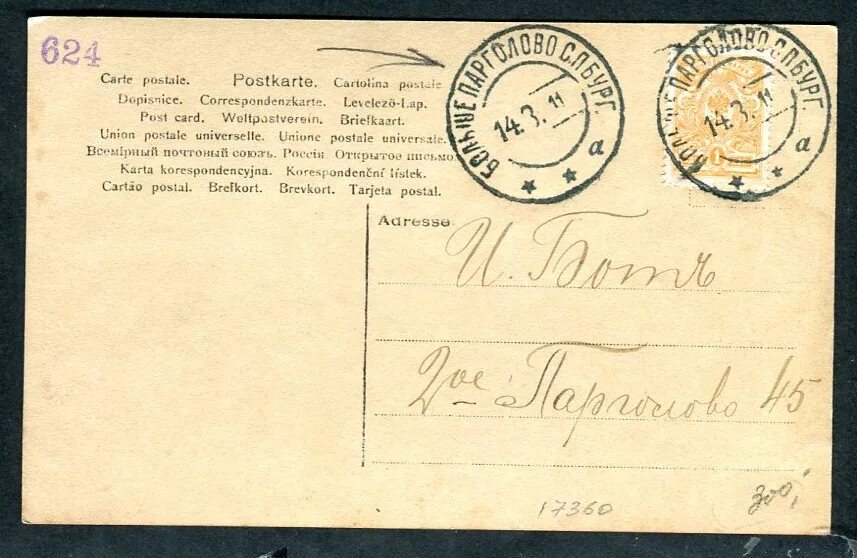 624
Carte postale. Postkarte. Cartolina postale
Dopisnice. Correspondenzkarte. Levelező-Lap.
Post card. Weltpostverein. Briefkaart.
Union postale universelle. Unione postale universale.
Всемірный почтовый союзъ. Россія Открытое письмо
Karta korespondencyjna. Korespondenční lístek.
Cartão postal. Brefkort. Brevkort. Tarjeta postal.
БОЛЬШЕ ПАРГОЛОВО С.ПБУРГ.
14.3.11
а
БОЛЬШЕ ПАРГОЛОВО С.ПБУРГ.
14.3.11
а
1
Adresse.
И. Ботъ
2ое Парголово 45
17360
300,